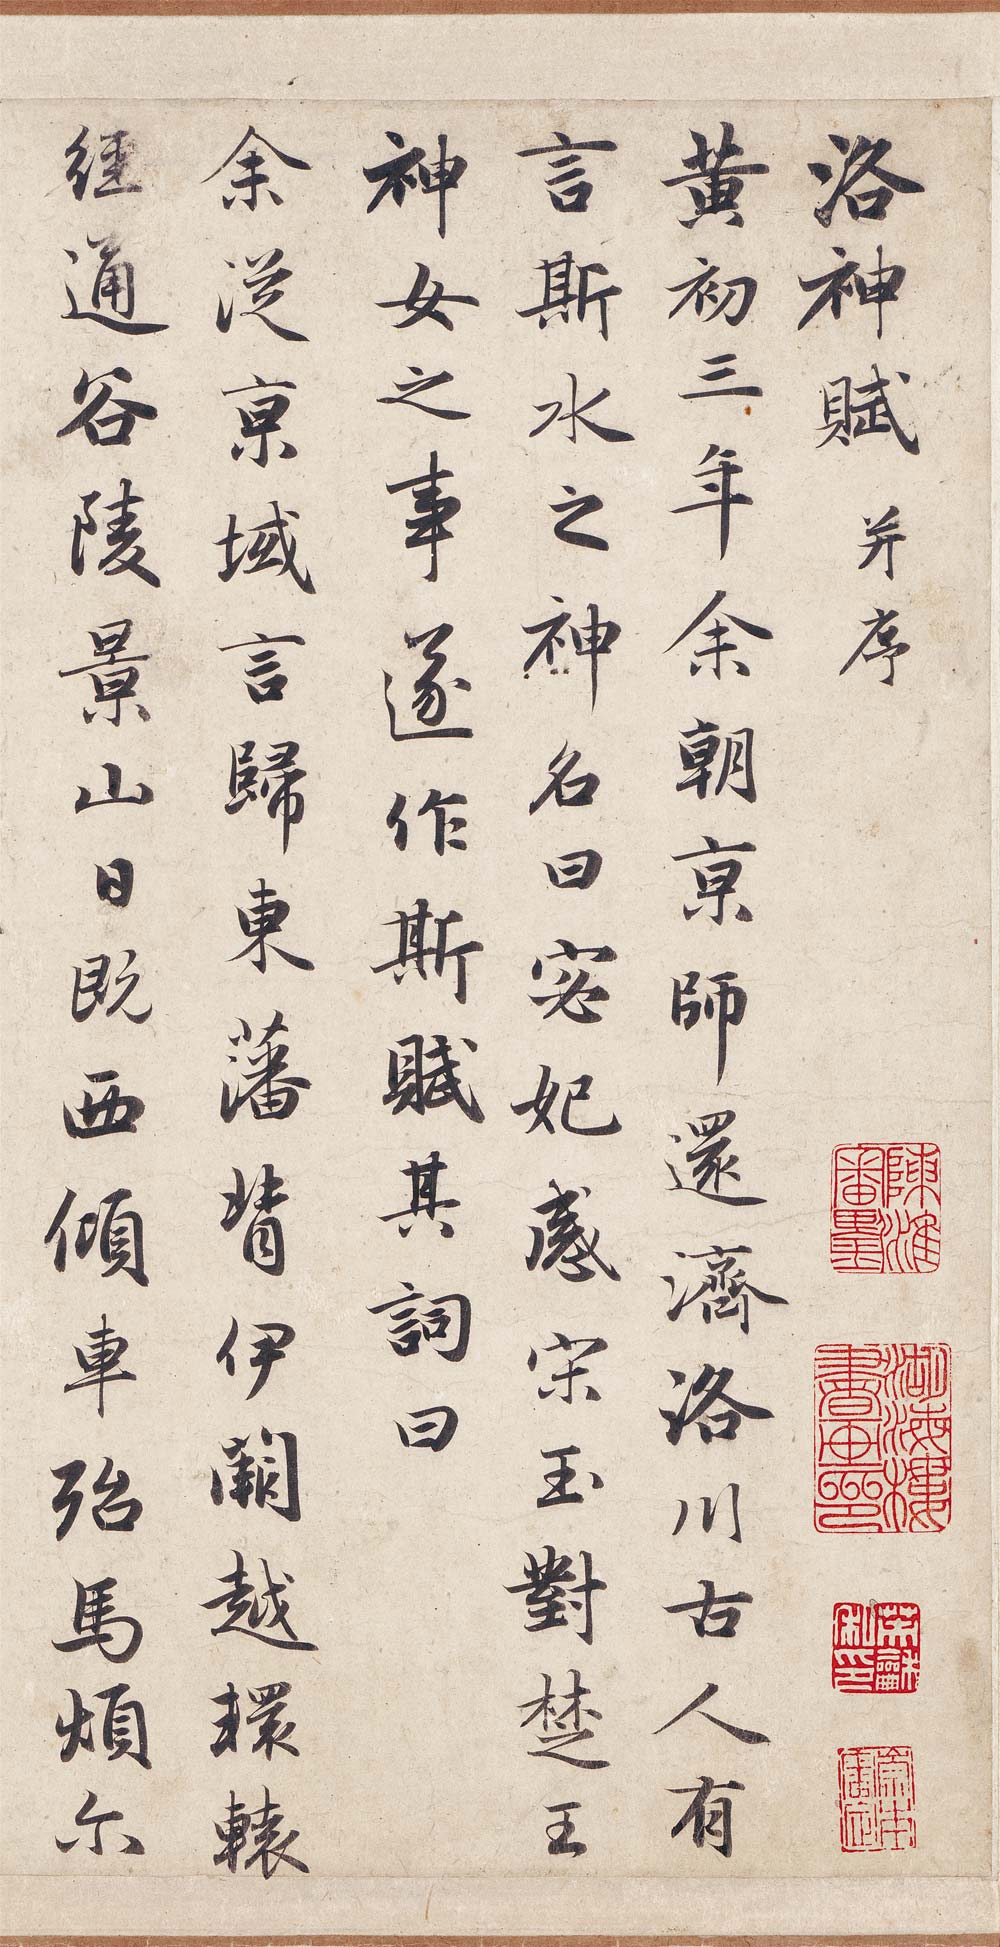 洛神賦并序
黄初三年余朝京師還濟洛川古人有
言斯水之神名曰宓妃感宋玉對楚王
神女之事遂作斯賦其詞曰
余從京域言歸東藩背伊闕越轘轅
經通谷陵景山日既西傾車殆馬煩尔
陳淮審墨
湖海樓書画印